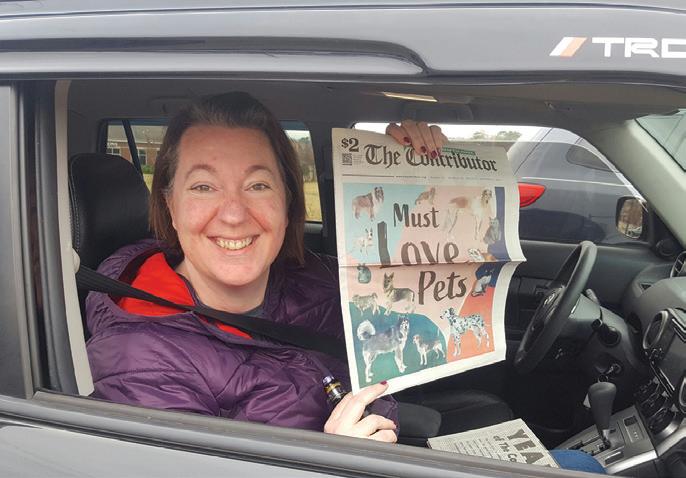 TRD
$2
The Contributor
Must
Love
Pets
YEA
of The Co